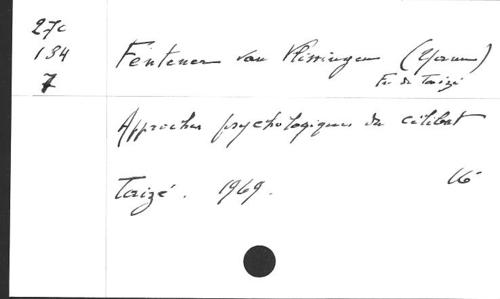 27c
184
7
Fentener van Vlissingen (Yorum)
Fr. de Taizé
Approches psychologiques du célibat
Taizé. 1969.